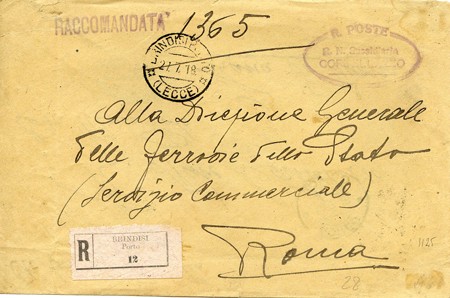 RACCOMANDATA
1365
R. POSTE
BRINDISI PORTO
27.7.18
(LECCE)
Alla Direzione Generale
delle Ferrovie dello Stato
(Servizio Commerciale)
Roma
R
BRINDISI
Porto
12
1125
28